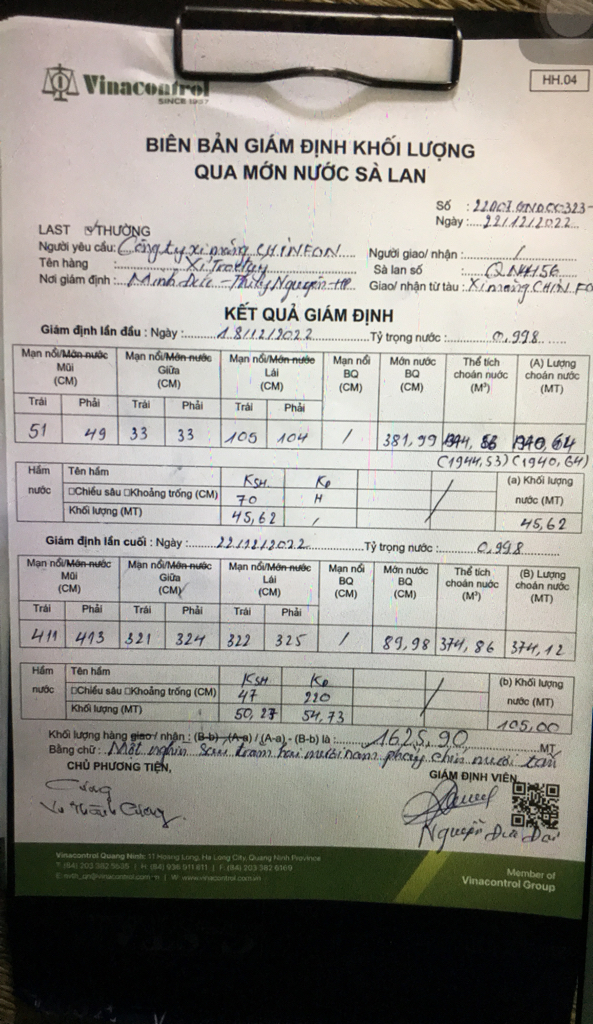 Vinacontrol
SINCE 1957
HH.04
BIÊN BẢN GIÁM ĐỊNH KHỐI LƯỢNG
QUA MỚN NƯỚC SÀ LAN
Số :
Ngày : 22/12/2022
LAST THƯỜNG
Người yêu cầu: Công ty xi măng CHINFON Người giao/ nhận : /
Tên hàng : Xỉ Sà lan số : QN4456
Nơi giám định : Minh Đức - Thủy Nguyên - HP Giao/ nhận từ tàu : Xi măng CHINFO
KẾT QUẢ GIÁM ĐỊNH
Giám định lần đầu : Ngày : 18/12/2022 Tỷ trọng nước : 0,998
Mạn nổi/Mớn nước Mũi (CM) Mạn nổi/Mớn nước Giữa (CM) Mạn nổi/Mớn nước Lái (CM) Mạn nổi BQ (CM) Mớn nước BQ (CM) Thể tích choán nước (M³) (A) Lượng choán nước (MT)
Trái Phải Trái Phải Trái Phải
51 49 33 33 105 104 / 381,99
(1944,53) (1940,64)
Hầm nước Tên hầm KSH. Kp (a) Khối lượng nước (MT)
□Chiều sâu □Khoảng trống (CM) 70 H
Khối lượng (MT) 45,62 / 45,62
Giám định lần cuối : Ngày : 22/12/2022 Tỷ trọng nước : 0,998
Mạn nổi/Mớn nước Mũi (CM) Mạn nổi/Mớn nước Giữa (CM) Mạn nổi/Mớn nước Lái (CM) Mạn nổi BQ (CM) Mớn nước BQ (CM) Thể tích choán nước (M³) (B) Lượng choán nước (MT)
Trái Phải Trái Phải Trái Phải
411 413 321 324 322 325 / 89,98 374,86 374,12
Hầm nước Tên hầm KSH Kp (b) Khối lượng nước (MT)
□Chiều sâu □Khoảng trống (CM) 47 220
Khối lượng (MT) 50,27 54,73 105,00
Khối lượng hàng giao / nhận : (B-b) -(A-a) / (A-a) - (B-b) là : 1625,90 MT
Bằng chữ : Một nghìn sáu trăm hai mươi năm phẩy chín mươi tấn
CHỦ PHƯƠNG TIỆN, GIÁM ĐỊNH VIÊN,
Cương
Vũ Thành Cương
Nguyễn Đức
Vinacontrol Quang Ninh: 11 Hoang Long, Ha Long City, Quang Ninh Province
Member of
Vinacontrol Group